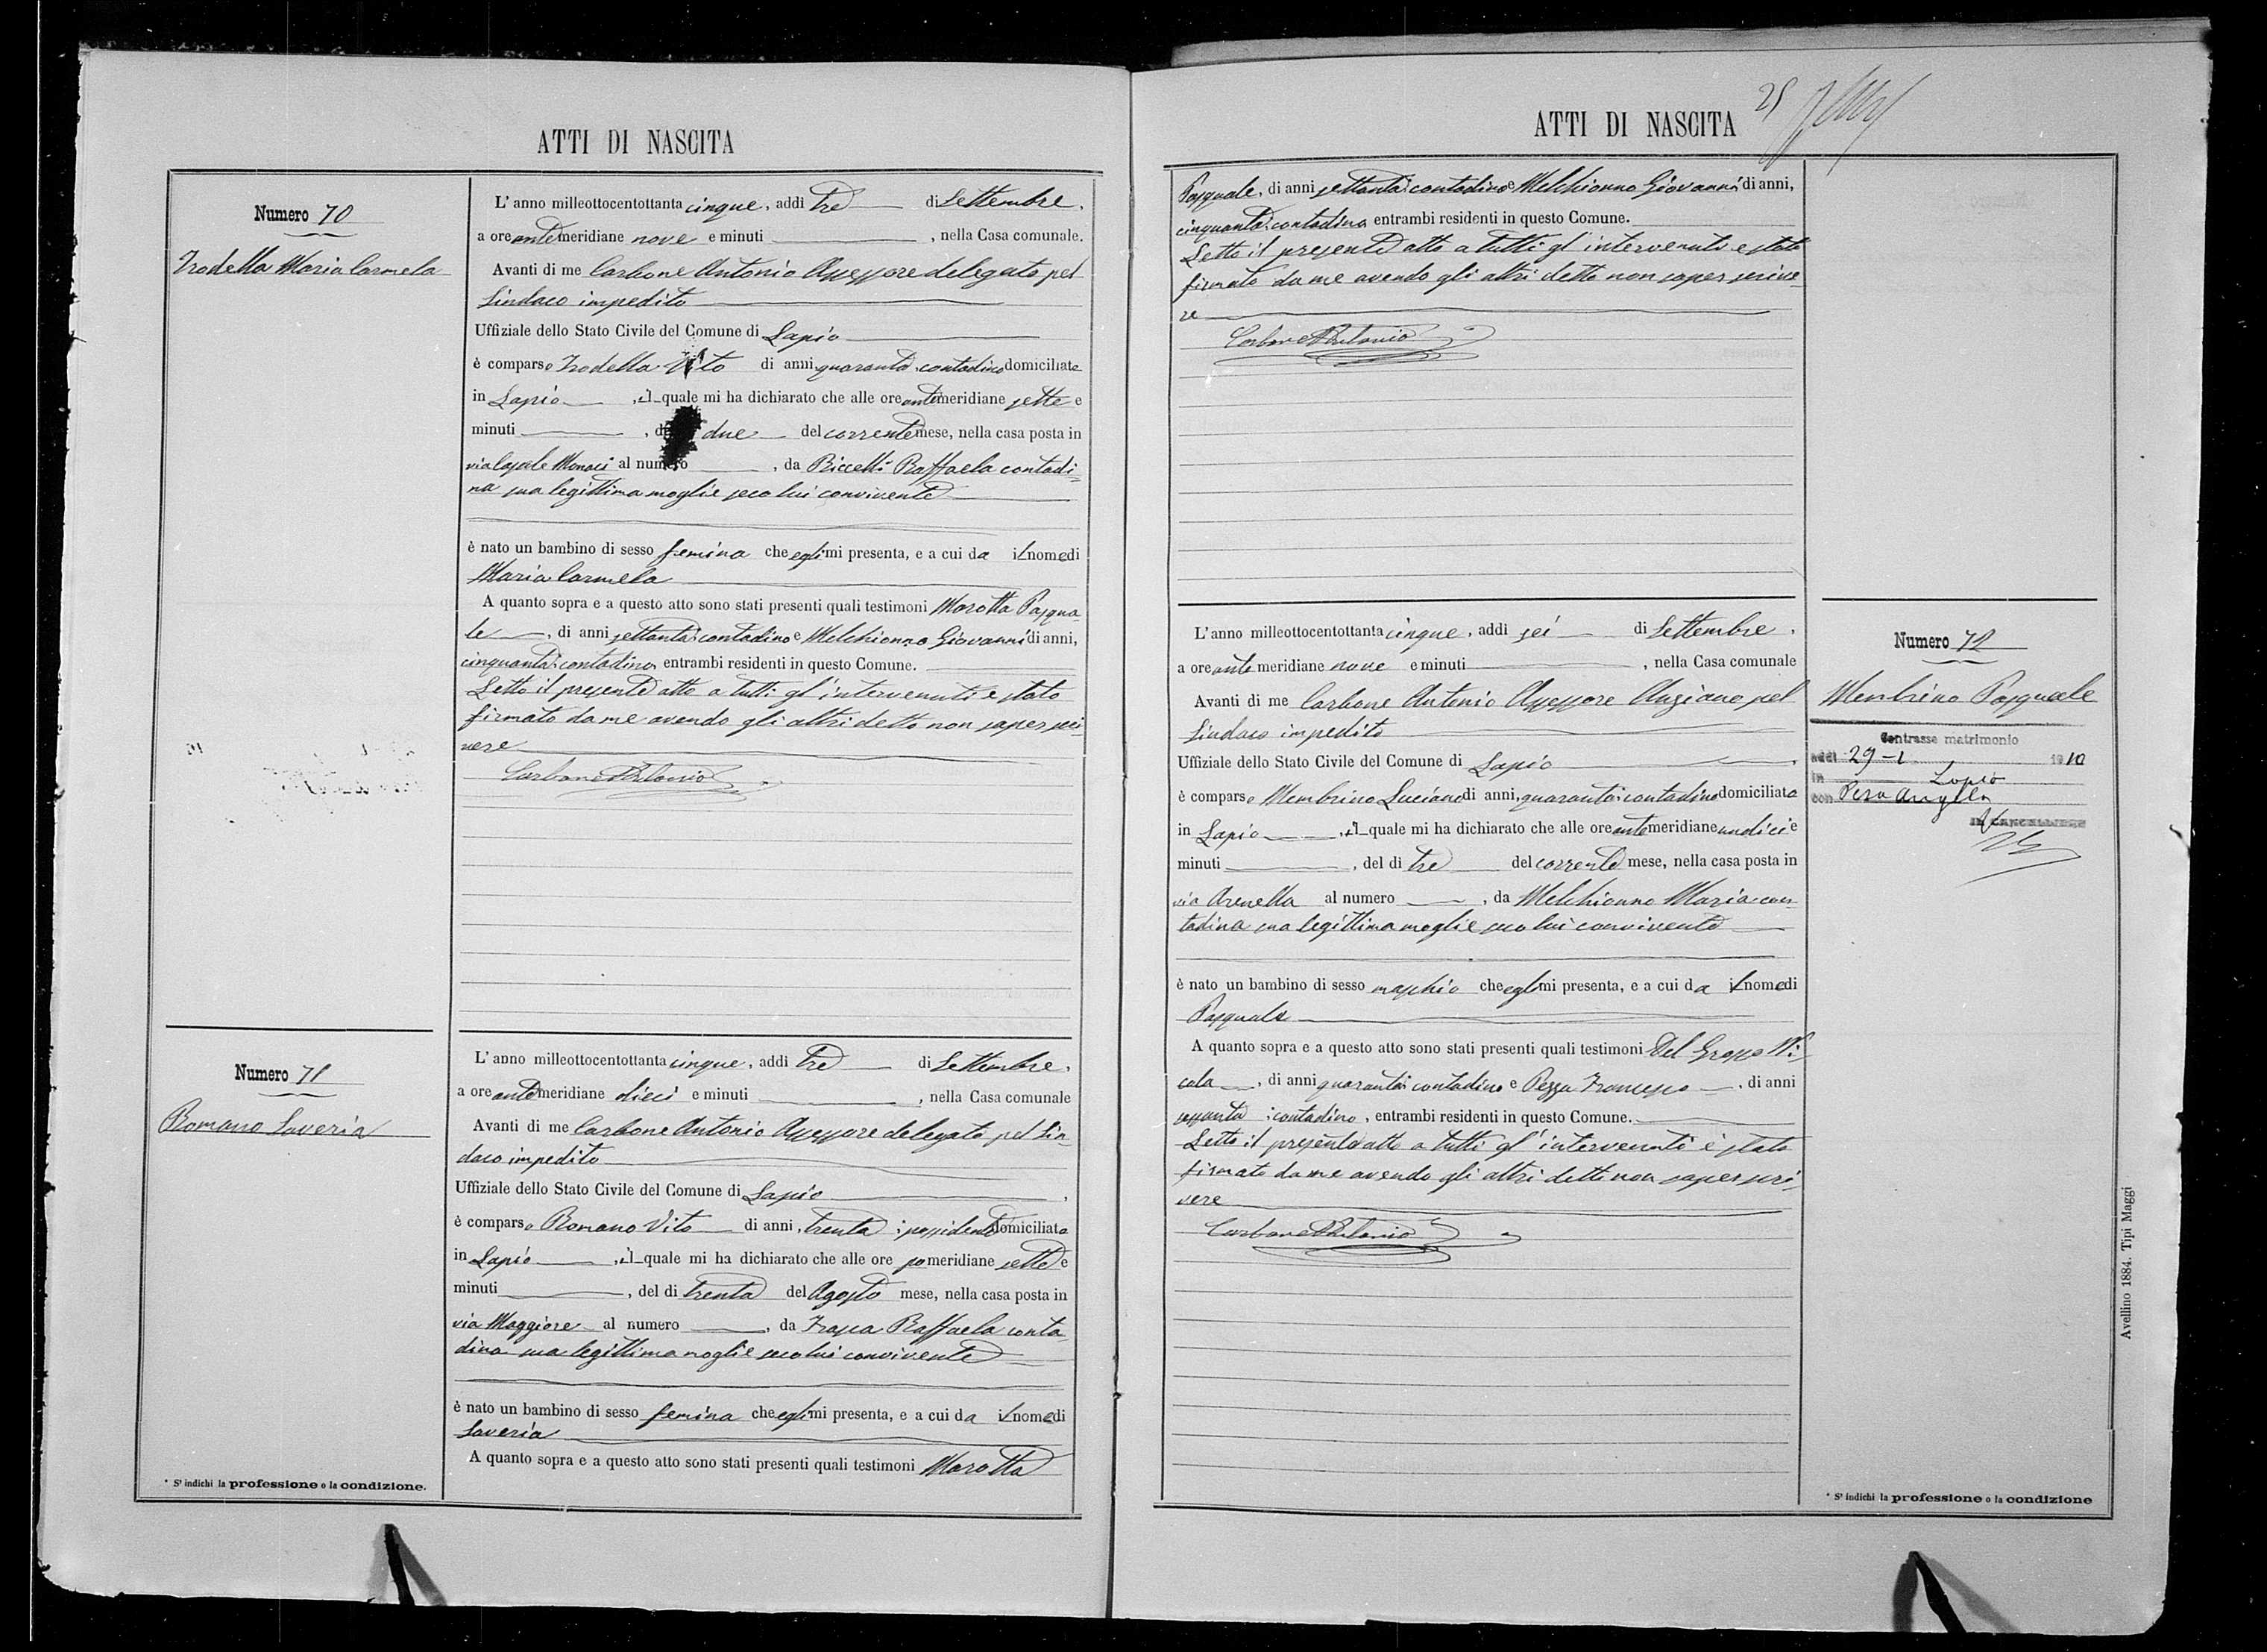 ATTI DI NASCITA
Numero 70
Trodella Maria Carmela
L'anno milleottocentottanta cinque, addì tre di Settembre,
a ore antimeridiane nove e minuti , nella Casa comunale.
Avanti di me Carbone Antonio Assessore delegato pel
Sindaco impedito
Uffiziale dello Stato Civile del Comune di Lapio
è comparso Trodella Vito di anni quaranta, contadino domiciliato
in Lapio , il quale mi ha dichiarato che alle ore antimeridiane sette e
minuti , due del corrente mese, nella casa posta in
via Casale Monaci al numero , da Riccelli Raffaela contadi
na sua legittima moglie seco lui convivente
è nato un bambino di sesso femina che egli mi presenta, e a cui da il nome di
Maria Carmela
A quanto sopra e a questo atto sono stati presenti quali testimoni Marotta Pasqua
le , di anni settanta, contadino e Melchionno Giovanni di anni,
cinquanta, contadino, entrambi residenti in questo Comune.
Letto il presente atto a tutti gl'intervenuti è stato
firmato da me avendo gli altri detto non saper scri
vere
Carbone Antonio
Numero 71
Romano Saveria
L'anno milleottocentottanta cinque, addì tre di Settembre,
a ore antimeridiane dieci e minuti , nella Casa comunale
Avanti di me Carbone Antonio Assessore delegato pel Sin
daco impedito
Uffiziale dello Stato Civile del Comune di Lapio ,
è comparso Romano Vito di anni, trenta, possidente domiciliato
in Lapio , il quale mi ha dichiarato che alle ore pomeridiane sette e
minuti , del dì trenta del Agosto mese, nella casa posta in
via Maggiore al numero , da Raffaela conta
dina sua legittima moglie seco lui convivente
è nato un bambino di sesso femina che egli mi presenta, e a cui da il nome di
Saveria
A quanto sopra e a questo atto sono stati presenti quali testimoni Marotta
* S'indichi la professione o la condizione.
ATTI DI NASCITA
25
Pasquale, di anni settanta, contadino e Melchionno Giovanni di anni,
cinquanta, contadino, entrambi residenti in questo Comune.
Letto il presente atto a tutti gl'intervenuti è stato
firmato da me avendo gli altri detto non saper scrive
re
Carbone Antonio
Numero 72
Membrino Pasquale
Contrasse matrimonio
addì 29-1 1910
in Lapio
con Angela
IL CANCELLIERE
L'anno milleottocentottanta cinque, addì sei di Settembre,
a ore antimeridiane nove e minuti , nella Casa comunale
Avanti di me Carbone Antonio Assessore Anziano pel
Sindaco impedito
Uffiziale dello Stato Civile del Comune di Lapio ,
è comparso Membrino Luciano di anni, quaranta, contadino domiciliato
in Lapio , il quale mi ha dichiarato che alle ore antimeridiane undici e
minuti , del dì tre del corrente mese, nella casa posta in
via Arenella al numero , da Melchionno Maria con
tadina sua legittima moglie seco lui convivente
è nato un bambino di sesso maschio che egli mi presenta, e a cui da il nome di
Pasquale
A quanto sopra e a questo atto sono stati presenti quali testimoni Del Grosso Ni
cola , di anni quaranta contadino e Pezza Francesco , di anni
sessanta, contadino, entrambi residenti in questo Comune.
Letto il presente atto a tutti gl'intervenuti è stato
firmato da me avendo gli altri detto non saper scri
vere
Carbone Antonio
* S'indichi la professione o la condizione
Avellino 1884. Tipi Maggi